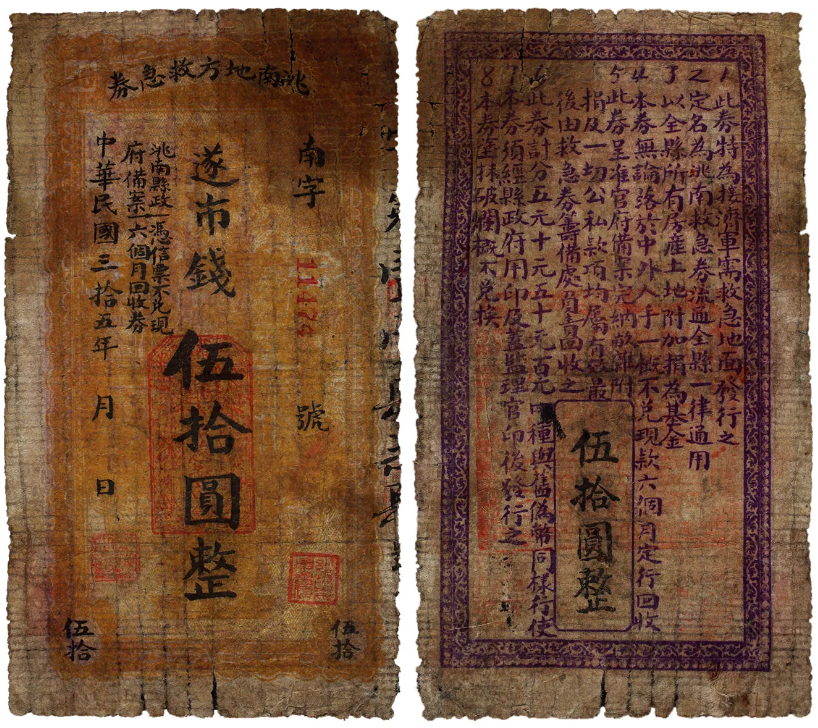 洮南地方救急券
南字 11474 號
遂市錢伍拾圓整
洮南縣政一憑信票不兌現
府備案一六個月回收券
中華民國三拾五年 月 日
伍拾
伍拾
1 此券特為接濟軍需救急地面發行之
2 定名為洮南救急券流通全縣一律通用
3 以全縣所有房產土地附加捐為基金
4 本券無論落於中外人手一概不兌現款六個月定行回收
5 此券呈准官府備案完納畝雜附
捐及一切公私款項均屬有效最
後由救急券籌備處負責回收之
6 此券計分五元十元五十元百元四種與舊偽幣同樣行使
7 本券須經縣政府用印及蓋監理官印後發行之
8 本券塗抹破爛概不兌換
伍拾圓整